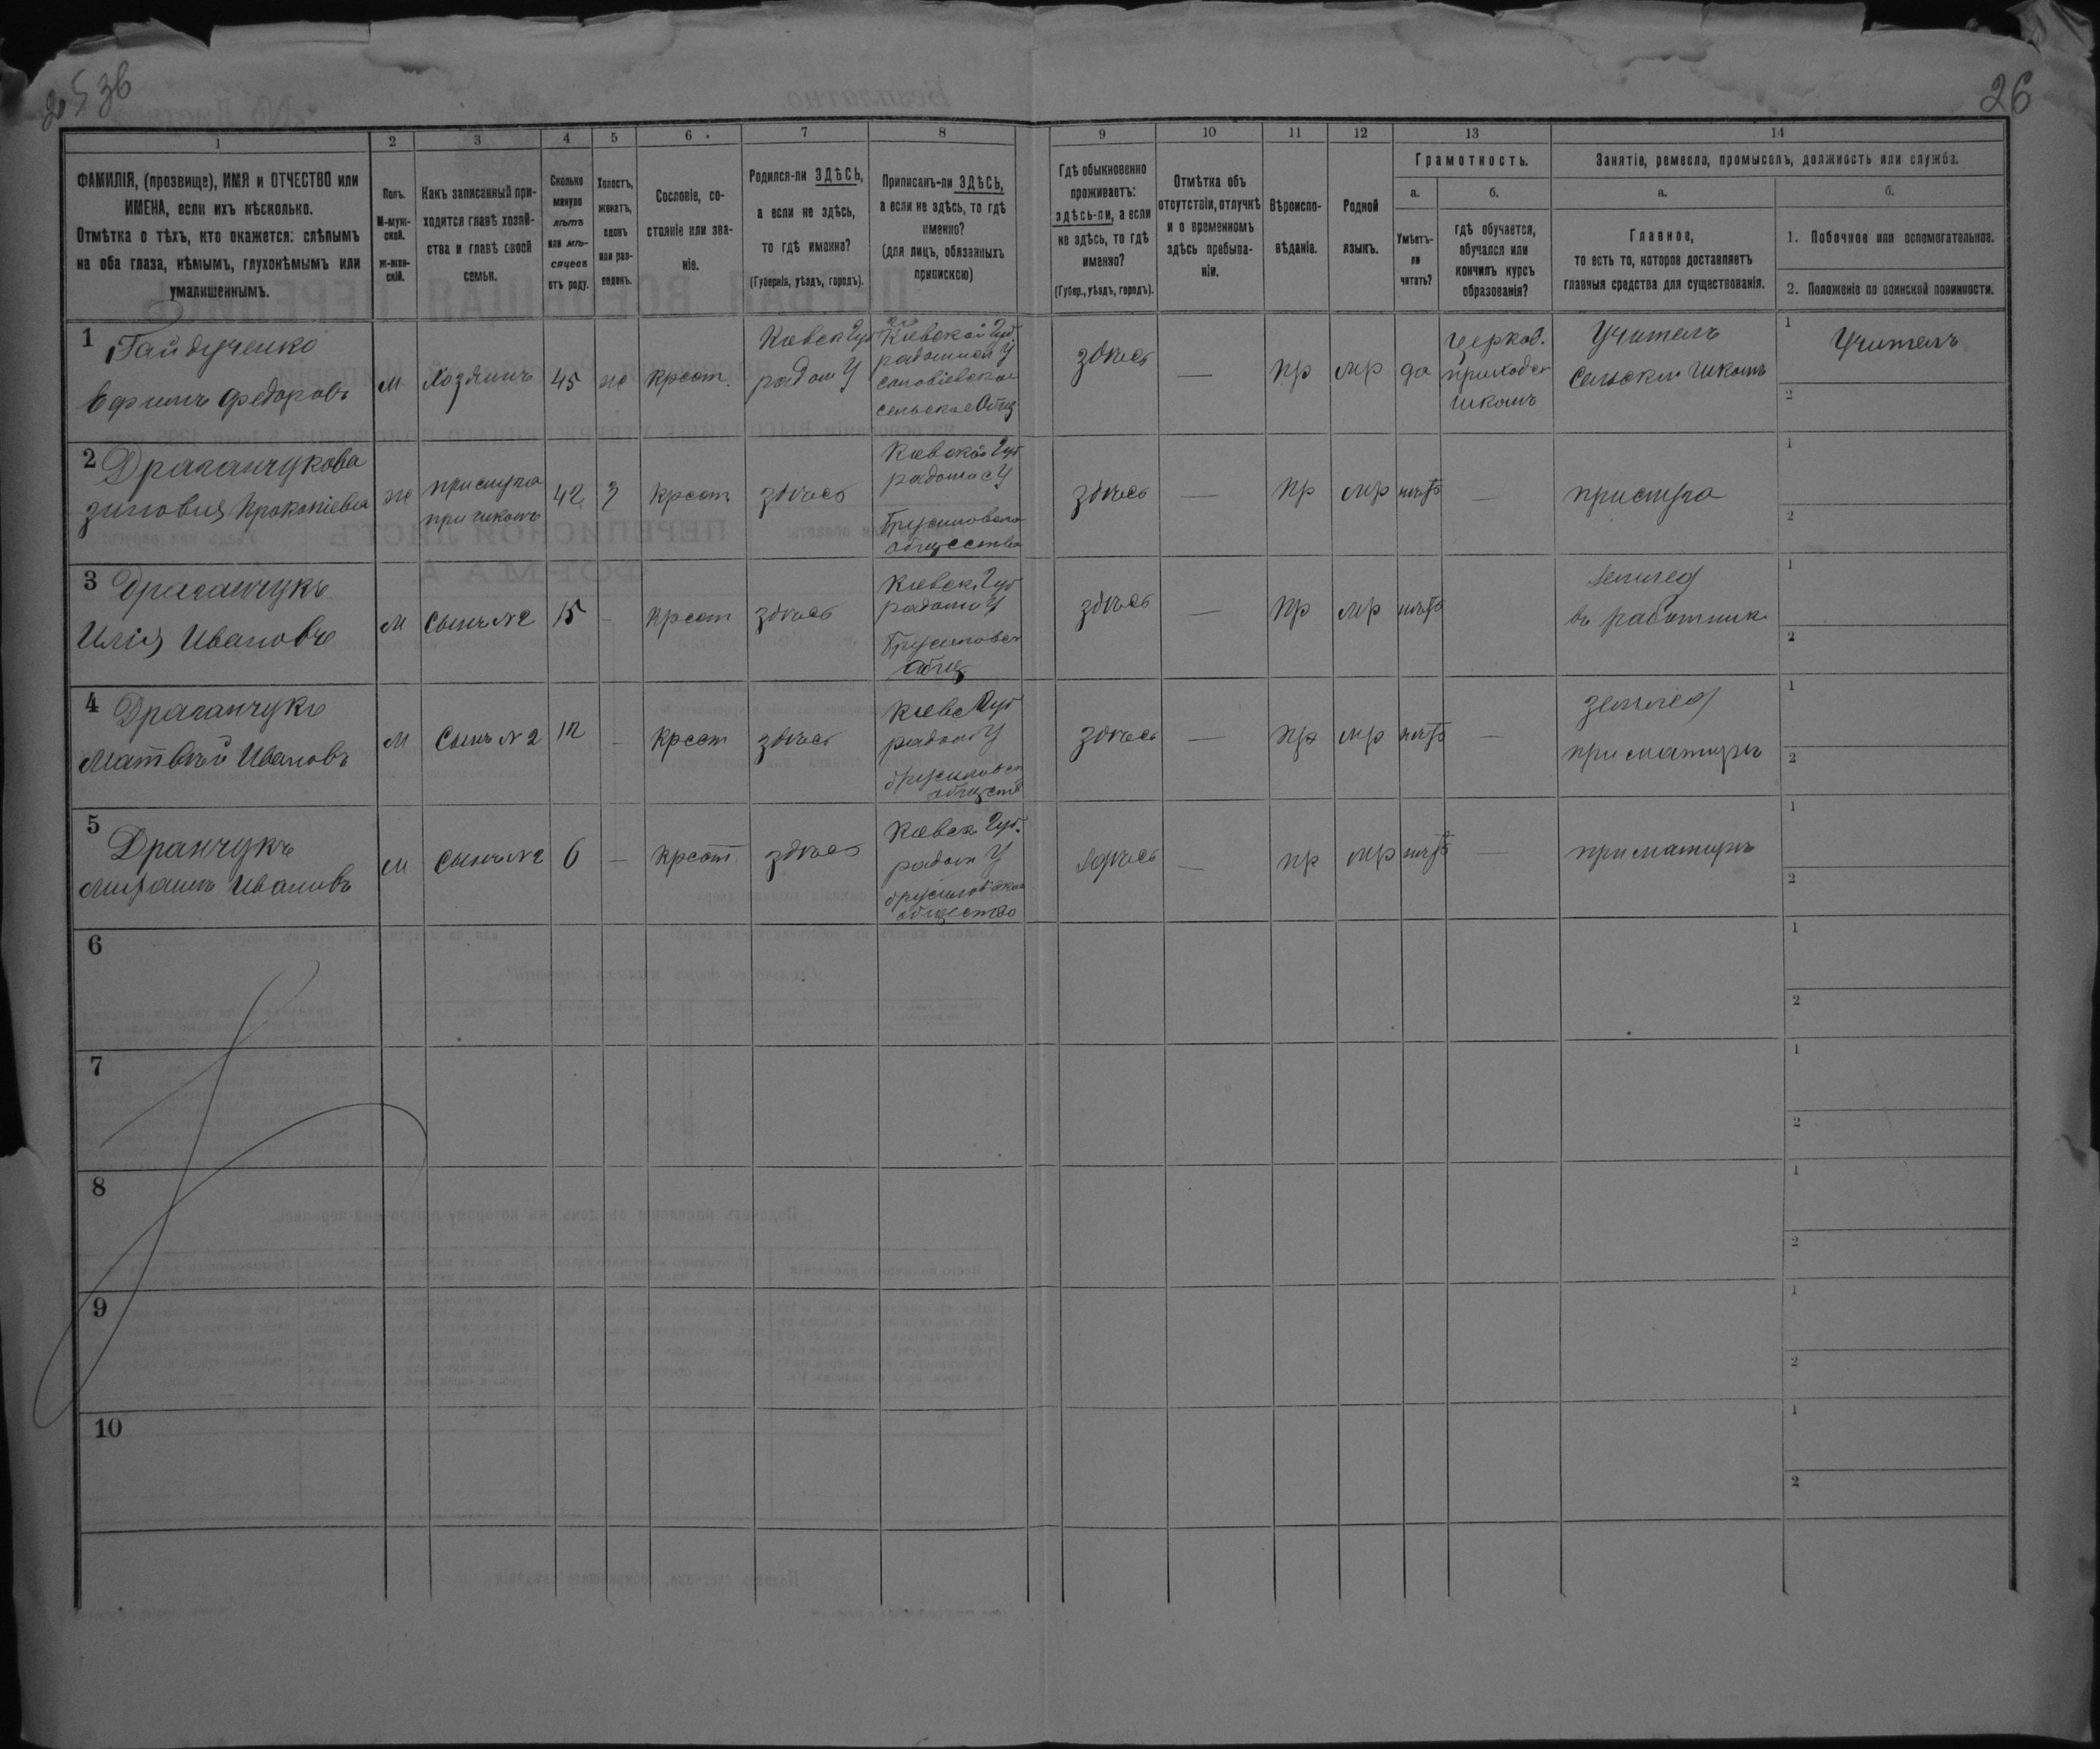 26
1 2 3 4 5 6 7 8 9 10 11 12 13 14
ФАМИЛІЯ, (прозвище), ИМЯ и ОТЧЕСТВО или
ИМЕНА, если ихъ нѣсколько.
Отмѣтка о тѣхъ, кто окажется: слѣпымъ
на оба глаза, нѣмымъ, глухонѣмымъ или
умалишеннымъ.
Полъ.
М-муж-
ской.
Ж-жен-
скій.
Какъ записанный при-
ходится главѣ хозяй-
ства и главѣ своей
семьи.
Сколько
минуло
лѣтъ
или мѣ-
сяцевъ
отъ роду.
Холостъ,
женатъ,
вдовъ
или раз-
веденъ.
Сословіе, со-
стояніе или зва-
ніе.
Родился-ли ЗДѢСЬ,
а если не здѣсь,
то гдѣ именно?
(Губернія, уѣздъ, городъ).
Приписанъ-ли ЗДѢСЬ,
а если не здѣсь, то гдѣ
именно?
(для лицъ, обязанныхъ
припискою)
Гдѣ обыкновенно
проживаетъ:
здѣсь-ли, а если
не здѣсь, то гдѣ
именно?
(Губер., уѣздъ, городъ).
Отмѣтка объ
отсутствіи, отлучкѣ
и о временномъ
здѣсь пребыва-
ніи.
Вѣроиспо-
вѣданіе.
Родной
языкъ.
Грамотность.
а.
Умѣетъ-
ли
читать?
б.
гдѣ обучается,
обучался или
кончилъ курсъ
образованія?
Занятіе, ремесло, промыселъ, должность или служба.
а.
Главное,
то есть то, которое доставляетъ
главныя средства для существованія.
б.
1. Побочное или вспомогательное.
2. Положеніе по воинской повинности.
1 Гайдученко
Ефимъ Федоровъ
м
Хозяинъ
45
же
Крест.
Киевск Губ
радом У
Киевской Губ
радомской У
сельское Общ
здѣсь
—
пр
мр
да
Церков.
приходск
школѣ
Учитель
Сельской школѣ
1 Учитель
2
2 Драганчукова
Зиновия Прокопіевна
же
прислуга
при школѣ
42
Крест
здѣсь
Киевской Губ
радомс У
Брусиловское
общество
здѣсь
—
пр
мр
нѣтъ
—
прислуга
1
2
3 Драганчукъ
Илія Ивановъ
м
Сынъ №2
15
-
Крест
здѣсь
Киевск Губ
радом У
Брусиловск
общ
здѣсь
—
пр
мр
нѣтъ
землед
въ работник
1
2
4 Драганчукъ
Матвѣй Ивановъ
м
Сынъ №2
12
-
Крест
здѣсь
Киевс Губ
радом У
брусиловск
обществ
здѣсь
—
пр
мр
нѣтъ
—
землед
при матеръ
1
2
5
Дранчукъ
Ивановъ
м
Сынъ №2
6
—
Крест.
здѣсь
Киевск Губ.
радом У
брусиловское
общество
здѣсь
—
пр
мр
нѣтъ
—
при матеръ
1
2
6
1
2
7
1
2
8
1
2
9
1
2
10
1
2